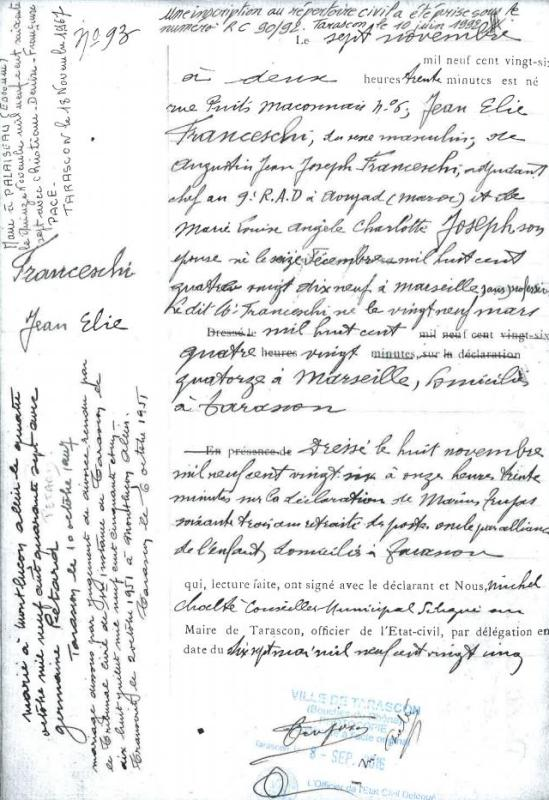 Une inscription au répertoire civil a été prise sous le
numéro RC 90/92. Tarascon le 10 juin 1992
Le sept novembre
mil neuf cent vingt-six
à deux heures trente minutes est né
rue Puits Maconnais n° 6, Jean Elie
Franceschi, du sexe masculin, de
Augustin Jean Joseph Franceschi, adjudant
chef au 9e R.A.D à (maroc) et de
Marie Louise Angèle Charlotte Josephson
épouse né le seize Décembre mil huit cent
quatre vingt dix neuf à Marseille, sans profession
Le dit Mr Franceschi né le vingt neuf mars
Dressé le mil huit cent mil neuf cent vingt-six
quatre heures vingt minutes, sur la déclaration
quatorze à Marseille, domiciliés
à Tarascon
En présence de Dressé le huit novembre
mil neuf cent vingt six à onze heures trente
minutes sur la déclaration de Marius
soixante trois ans retraité des postes oncle par alliance
de l'enfant, domicilié à Tarascon
qui, lecture faite, ont signé avec le déclarant et Nous, Michel
Conseiller Municipal Délégué
Maire de Tarascon, officier de l'Etat-civil, par délégation en
date du dix sept mai mil neuf cent vingt cinq
n° 93
Marié à PALAISEAU (Essonne)
le quinze Novembre mil neuf cent soixante
sept avec Christiane-Denise-Françoise
PACE-
TARASCON le 18 Novembre 1967
Franceschi
Jean Elie
marié à Montluçon allier le quatre
octobre mil neuf cent quarante sept avec
germaine Petard
PETARD
Tarascon le 10 octobre 1947
mariage dissous par jugement de divorce rendu par
le Tribunal civil de 1re instance de Tarascon, le
dix huit juillet mil neuf cent cinquante
Transcrit le 2 octobre 1951 à Montluçon allier.
Tarascon le 6 octobre 1951
VILLE DE TARASCON
Tarascon, 8 - SEP.
L'Officier de l'Etat Civil Délégué